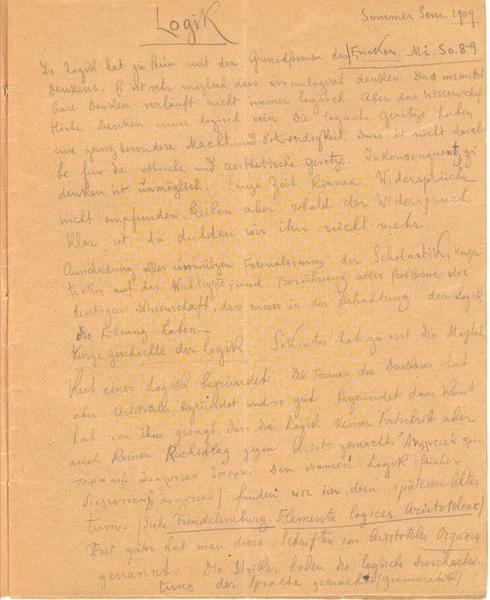 Logik
Sommer Sem. 1909
Eucken Mi. So. 8-9
Die Logik hat zu thun mit den Grundformen des
Denkens. Es ist sehr möglich dass wir unlogisch denken. Das unmittel
bare Denken verlauft nicht immer logisch Aber das wissenschaf
tliche Denken muss logisch sein. Die logische Gesetze haben
eine ganz besondere Macht und Notwendigkeit. Dass ist nicht dassel
be für die ethische und aesthetische Gesetze. Inkonsequent zu
denken ist unmöglich. Lange Zeit können Widersprüche
nicht empfunden bleiben aber sobald der Widerspruch
klar ist, da dulden wir ihn nicht mehr.
Ausscheidung alles unnützen Formalismus der Scholastik, Konzen
tration auf das Wichtigste, und Berührung aller Probleme der
heutigen Wissenschaft, dass muss in der Betrachtung der Logik
die Führung haben.
Kurze geschichte der Logik. Sokrates hat zu erst die Möglich
keit einer Logik begründet. Die Formen des Denkens hat
aber Aristoteles begründet und so gut begründet dass Kant
hat von ihm gesagt dass die Logik keinen Fortschritt aber
auch keinen Ruckschlag gegen Arist. gemacht.
Den Namen Logik früher
finden wir in dem späteren Alter
tum. (Siehe Trendelenburg, Elementa logices Aristoteleae)
Erst später hat man diese Schriften von Aristoteles Organon
genannt. Die Stoiker haben die logische Durcharbei
tung der Sprache gemacht (Grammatik)